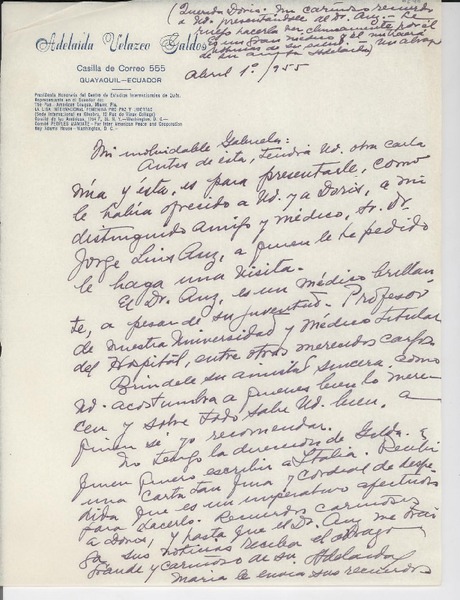 (Querida Doris: Un cariñoso recuerdo
a Ud. presentándole al Dr. Auz, – le
ruego hacerla ver clínicamente por él
es un gran médico y él me traerá
noticias de su salud. – Un abrazo
de su amiga Adelaida)
Adelaida Velasco Galdos
Casilla de Correo 555
GUAYAQUIL-ECUADOR
Presidenta Honoraria del Centro de Estudios Internacionales de Quito.
Representante en el Ecuador de:
The Pan American League, Miami Fla.
LA LIGA INTERNACIONAL FEMENINA PRO PAZ Y LIBERTAD
(Sede Internacional en Ginebra, 12 Rue du Vieux College)
Comité de las Américas, 1734 F. St. N. W.-Washington, D. C.
Comité PEOPLES MANDATE - For Inter American Peace and Cooperation
Hay Adams House - Washington, D. C.
Abril 1º / 955
Mi inolvidable Gabriela:
Antes de esta, tendrá Ud. otra carta
mía y esta, es para presentarle, como
le había ofrecido a Ud. y a Doris, a mi
distinguido amigo y médico, Sr. Dr.
Jorge Luis Auz, a quien le he pedido
le haga una visita.
El Dr. Auz, es un médico brillan-
te, a pesar de su juventud. Profesor
de nuestra Universidad y Médico titular
del Hospital, entre otros merecidos cargos.
Bríndele su amistad sincera, como
Ud. acostumbra a quienes bien lo mere-
cen y sobre todo sabe Ud. bien, a
quien se yo recomendar.
No tengo la dirección de Gilda. E
quiero escribir a Italia. Recibí
una carta tan fina y cordial de despe-
dida que es un imperativo afectuoso
para hacerlo. Recuerdos cariñosos
a Doris, y hasta que el Dr. Auz me trai-
ga sus noticias reciba el abrazo
grande y cariñoso de su Adelaida
María le envía sus recuerdos